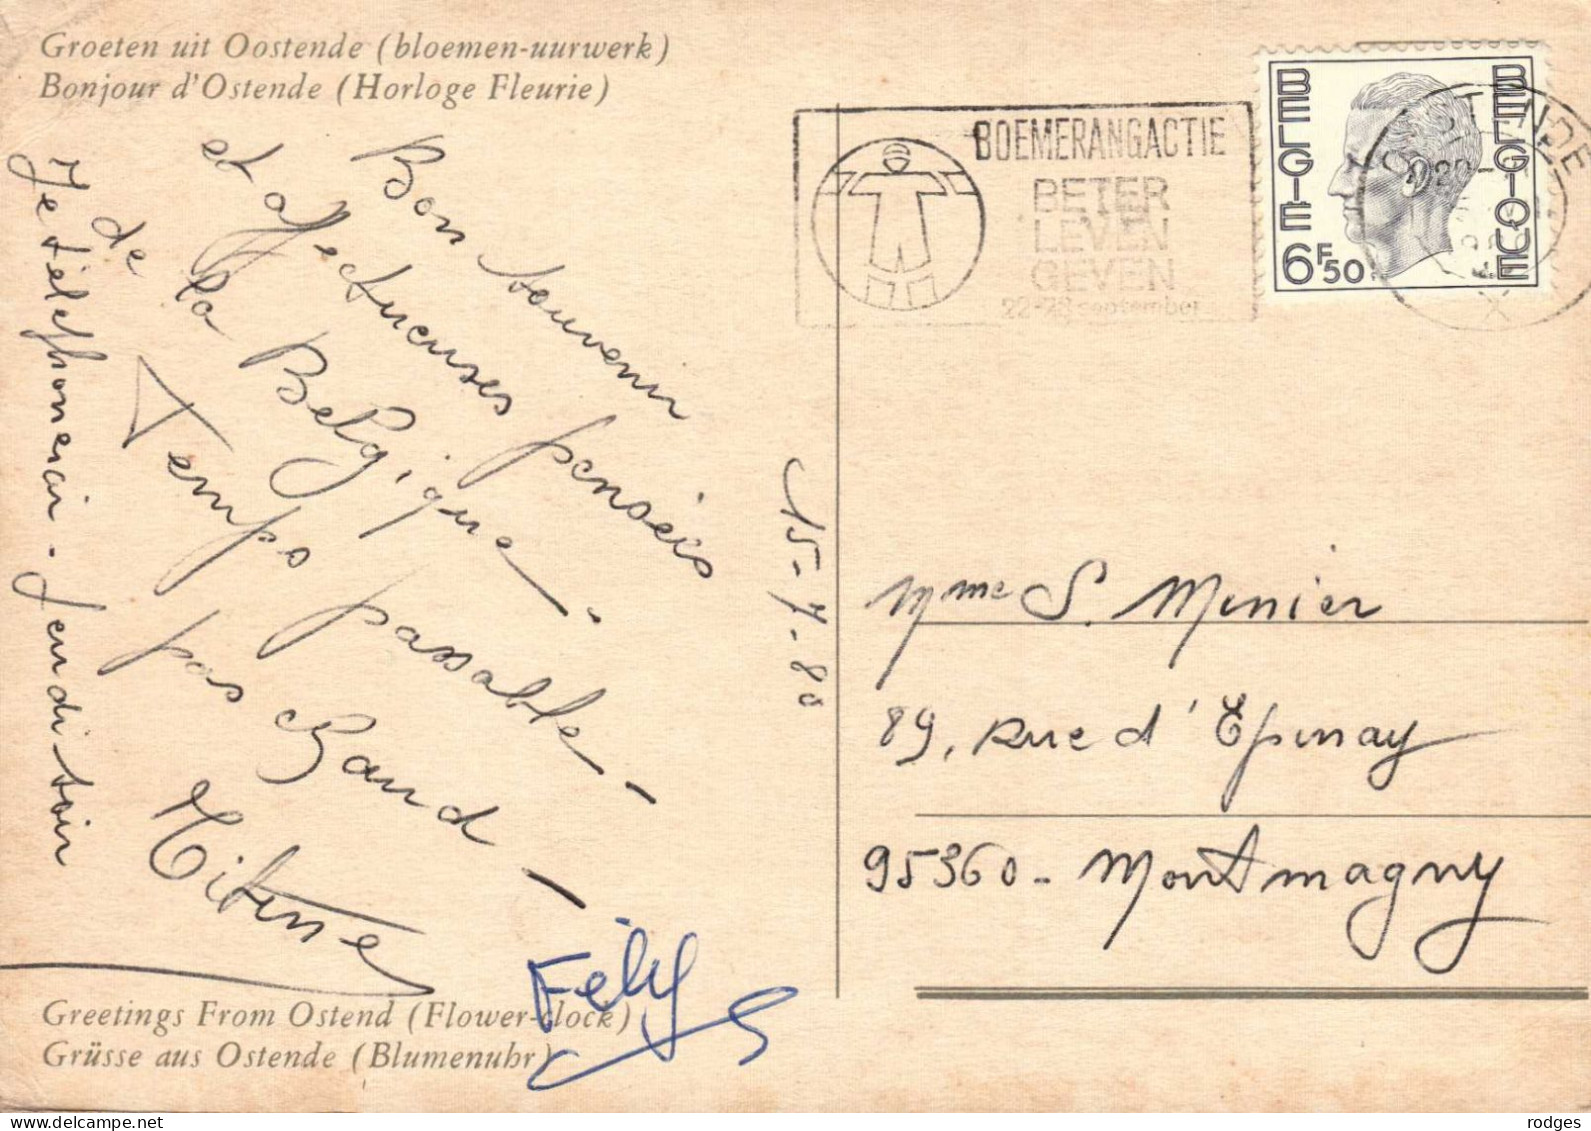 Groeten uit Oostende (bloemen-uurwerk)
Bonjour d'Ostende (Horloge Fleurie)
Bon souvenir
et affectueuses pensées
de la Belgique -
Temps passable -
pas chaud -
Titine
Fély
Je téléphonerai - jeudi soir
15-7-80
Greetings From Ostend (Flower-clock)
Grüsse aus Ostende (Blumenuhr)
BOEMERANGACTIE
BETER
LEVEN
GEVEN
22-28 september
BELGIE
BELGIQUE
6F50
OOSTENDE
Mme S. Menier
89, Rue d'Epinay
95360 - Montmagny
rodges